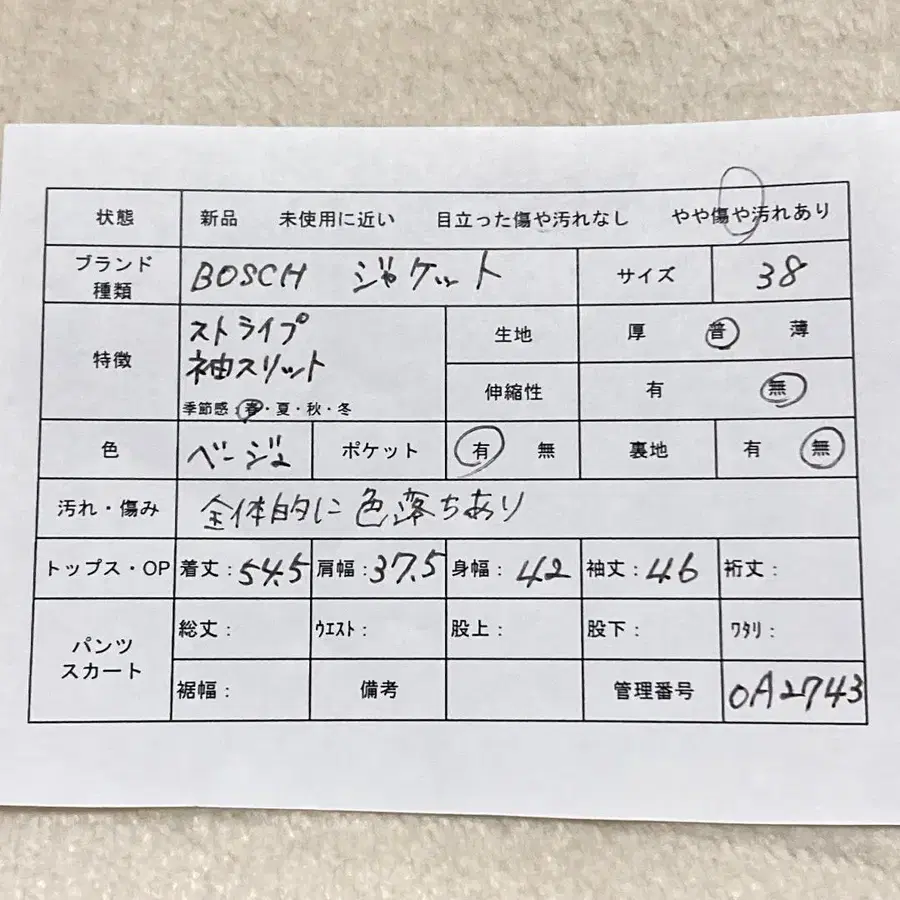 状態 新品 未使用に近い 目立った傷や汚れなし やや傷や汚れあり
ブランド 種類 BOSCH ジャケット サイズ 38
特徴 ストライプ
袖スリット
季節感:春・夏・秋・冬
生地 厚 普 薄
伸縮性 有 無
色 ベージュ ポケット 有 無 裏地 有 無
汚れ・傷み 全体的に色落ちあり
トップス・OP 着丈:54.5 肩幅:37.5 身幅:42 袖丈:46 裄丈:
パンツ スカート 総丈: ウエスト: 股上: 股下: ワタリ:
裾幅: 備考 管理番号 OA2743